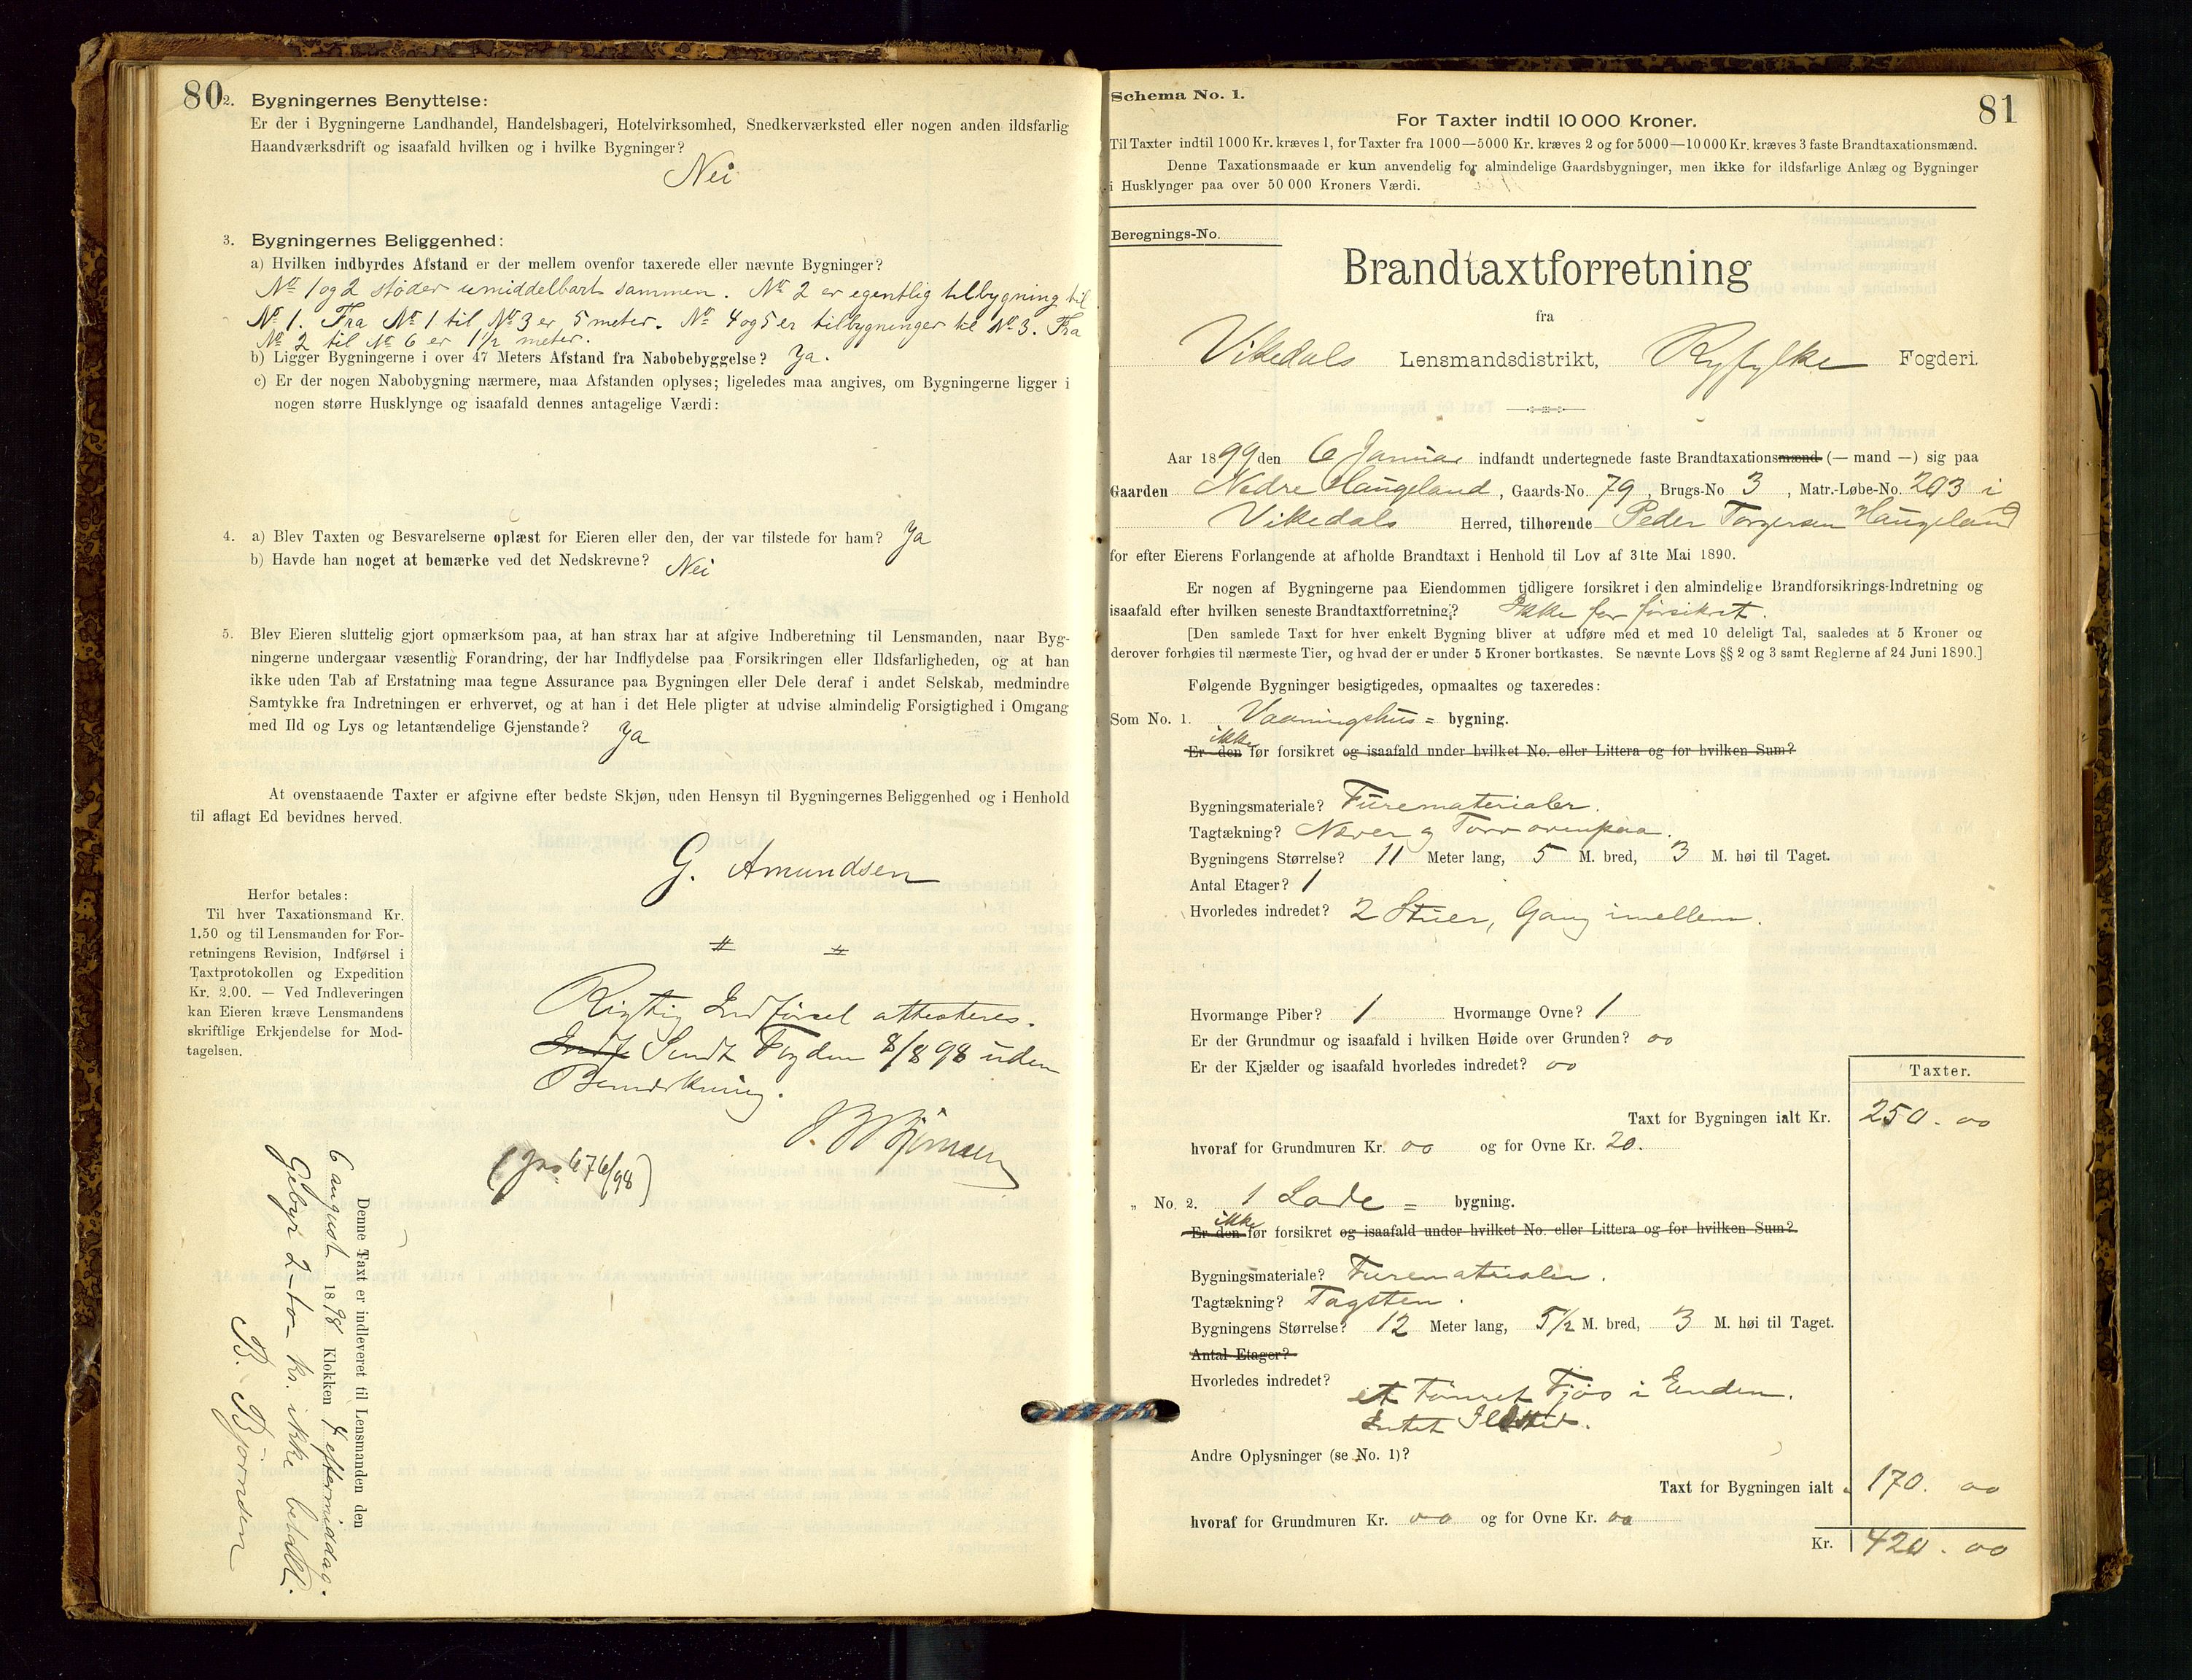 80
2. Bygningernes Benyttelse:
Er der i Bygningerne Landhandel, Handelsbageri, Hotelvirksomhed, Snedkerværksted eller nogen anden ildsfarlig
Haandværksdrift og isaafald hvilken og i hvilke Bygninger?
Nei
3. Bygningernes Beliggenhed:
a) Hvilken indbyrdes Afstand er der mellem ovenfor taxerede eller nævnte Bygninger?
No 1 og 2 støder umiddelbart sammen. No 2 er egentlig tilbygning til
No 1. Fra No 1 til No 3 er 5 meter. No 4 og 5 er tilbygninger til No 3. Fra
No 2 til No 6 er 1 1/2 meter.
b) Ligger Bygningerne i over 47 Meters Afstand fra Nabobebyggelse? Ja.
c) Er der nogen Nabobygning nærmere, maa Afstanden oplyses; ligeledes maa angives, om Bygningerne ligger i
nogen større Husklynge og isaafald dennes antagelige Værdi:
4. a) Blev Taxten og Besvarelserne oplæst for Eieren eller den, der var tilstede for ham? Ja
b) Havde han noget at bemærke ved det Nedskrevne? Nei
5. Blev Eieren sluttelig gjort opmærksom paa, at han strax har at afgive Indberetning til Lensmanden, naar Byg-
ningerne undergaar væsentlig Forandring, der har Indflydelse paa Forsikringen eller Ildsfarligheden, og at han
ikke uden Tab af Erstatning maa tegne Assurance paa Bygningen eller Dele deraf i andet Selskab, medmindre
Samtykke fra Indretningen er erhvervet, og at han i det Hele pligter at udvise almindelig Forsigtighed i Omgang
med Ild og Lys og letantændelige Gjenstande? Ja
At ovenstaaende Taxter er afgivne efter bedste Skjøn, uden Hensyn til Bygningernes Beliggenhed og i Henhold
til aflagt Ed bevidnes herved.
G. Amundsen
Herfor betales:
Til hver Taxationsmand Kr.
1.50 og til Lensmanden for For-
retningens Revision, Indførsel i
Taxtprotokollen og Expedition
Kr. 2.00. — Ved Indleveringen
kan Eieren kræve Lensmandens
skriftlige Erkjendelse for Mod-
tagelsen.
Rigtig Indførsel attesteres.
Indf Sendt Fogden 8/8 98 uden
Bemærkning.
(Jno 676/98)
Denne Taxt er indleveret til Lensmanden den
6 august 1898 Klokken 4 eftermiddag.
Gebyr 2 - to - kr. ikke betalt.
B. Bjørnsen
81
Schema No. 1.
For Taxter indtil 10 000 Kroner.
Til Taxter indtil 1000 Kr. kræves 1, for Taxter fra 1000—5000 Kr. kræves 2 og for 5000—10000 Kr. kræves 3 faste Brandtaxationsmænd.
Denne Taxationsmaade er kun anvendelig for almindelige Gaardsbygninger, men ikke for ildsfarlige Anlæg og Bygninger
i Husklynger paa over 50 000 Kroners Værdi.
Beregnings-No.
Brandtaxtforretning
fra
Vikedals Lensmandsdistrikt, Ryfylke Fogderi.
Aar 1899 den 6 Januar indfandt undertegnede faste Brandtaxationsmænd (— mand —) sig paa
Gaarden Nedre Haugeland, Gaards-No. 79, Brugs-No 3, Matr.-Løbe-No. 203 i
Vikedals Herred, tilhørende Peder Torgersen Haugeland
for efter Eierens Forlangende at afholde Brandtaxt i Henhold til Lov af 31te Mai 1890.
Er nogen af Bygningerne paa Eiendommen tidligere forsikret i den almindelige Brandforsikrings-Indretning og
isaafald efter hvilken seneste Brandtaxtforretning? Ikke før forsikret.
[Den samlede Taxt for hver enkelt Bygning bliver at udføre med et med 10 deleligt Tal, saaledes at 5 Kroner og
derover forhøies til nærmeste Tier, og hvad der er under 5 Kroner bortkastes. Se nævnte Lovs §§ 2 og 3 samt Reglerne af 24 Juni 1890.]
Følgende Bygninger besigtigedes, opmaaltes og taxeredes:
Som No. 1. Vaaningshus = bygning.
ikke
Er den før forsikret og isaafald under hvilket No. eller Littera og for hvilken Sum?
Bygningsmateriale? Furematerialer.
Tagtækning? Næver og Torv ovenpaa.
Bygningens Størrelse? 11 Meter lang, 5 M. bred, 3 M. høi til Taget.
Antal Etager? 1
Hvorledes indredet? 2 Stuer, Gang imellem.
Hvormange Piber? 1 Hvormange Ovne? 1
Er der Grundmur og isaafald i hvilken Høide over Grunden? oo
Er der Kjælder og isaafald hvorledes indredet? oo
Taxter.
Taxt for Bygningen ialt Kr. 250. oo
hvoraf for Grundmuren Kr. oo og for Ovne Kr. 20.
„ No. 2. 1 Lade = bygning.
ikke
Er den før forsikret og isaafald under hvilket No. eller Littera og for hvilken Sum?
Bygningsmateriale? Furematerialer.
Tagtækning? Tagsten.
Bygningens Størrelse? 12 Meter lang, 5 1/2 M. bred, 3 M. høi til Taget.
Antal Etager?
Hvorledes indredet? et tømret Fjøs i Enden.
Intet Ildsted.
Andre Oplysninger (se No. 1)?
Taxt for Bygningen ialt 170. oo
hvoraf for Grundmuren Kr. oo og for Ovne Kr. oo
Kr. 420. oo